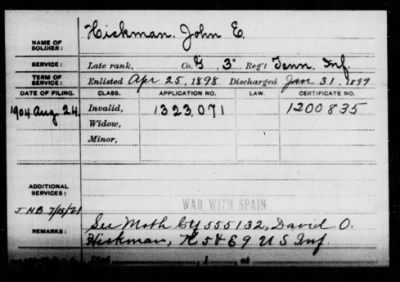 NAME OF SOLDIER: Hickman, John E.
SERVICE: Late rank, Co. G, 3 Reg't Tenn. Inf.
TERM OF SERVICE: Enlisted Apr 25, 1898 Discharged Jan. 31, 1899
DATE OF FILING. CLASS. APPLICATION NO. LAW. CERTIFICATE NO.
1904 Aug 24. Invalid, 1323,071 1200835
Widow,
Minor,
ADDITIONAL SERVICES:
WAR WITH SPAIN
REMARKS: See Moth 555132, David O.
Hickman, 5 & 69 U S Inf.